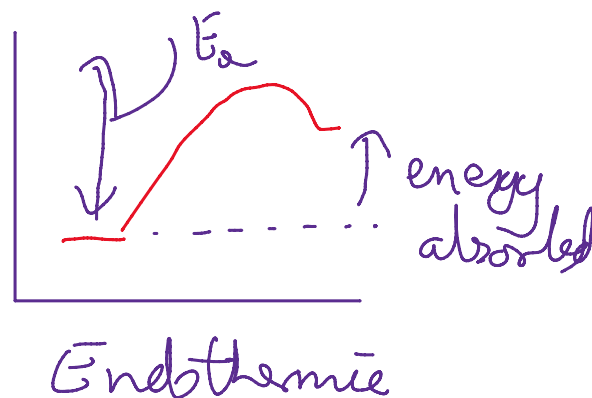 Ea
energy
absorbed
Endothemic